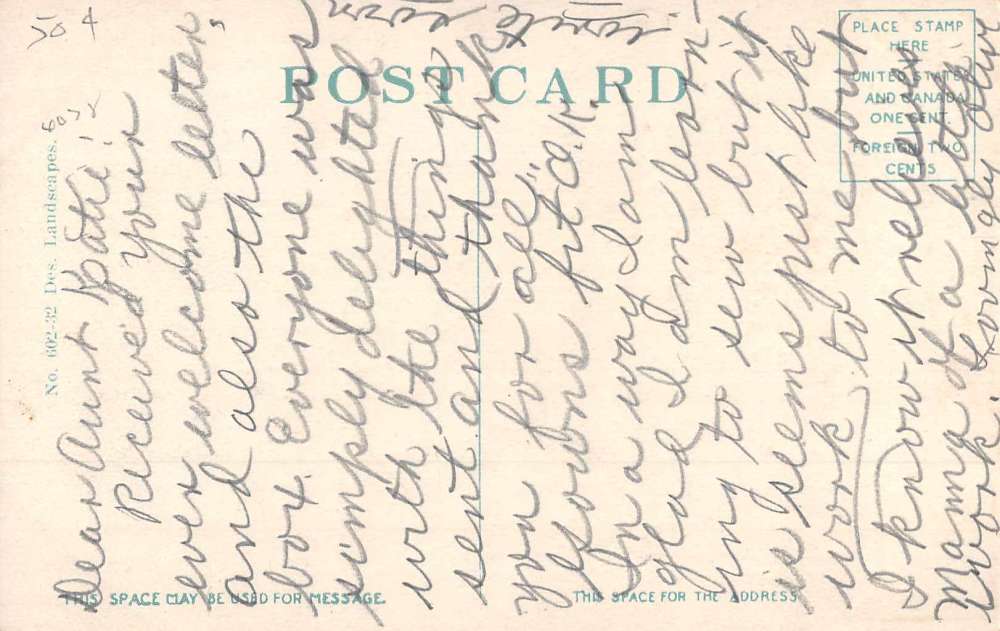 50 4
6032
POST CARD
PLACE STAMP
HERE
UNITED STATES
AND CANADA
ONE CENT.
FOREIGN TWO
CENTS
No. 602-32 Des. Landscapes.
THIS SPACE MAY BE USED FOR MESSAGE.
THIS SPACE FOR THE ADDRESS.
Dear Aunt Katie!
Received your
ever welcome letter,
and also the
box. Everyone was
simply delighted
with the things
sent and thank
you for all.
Gowns fit O.K.
In a way I am
glad I am learn-
ing to sew but it
is seems just like
work to me but
I know it relieves
Mama of a lot of
work. Lovingly your
write soon